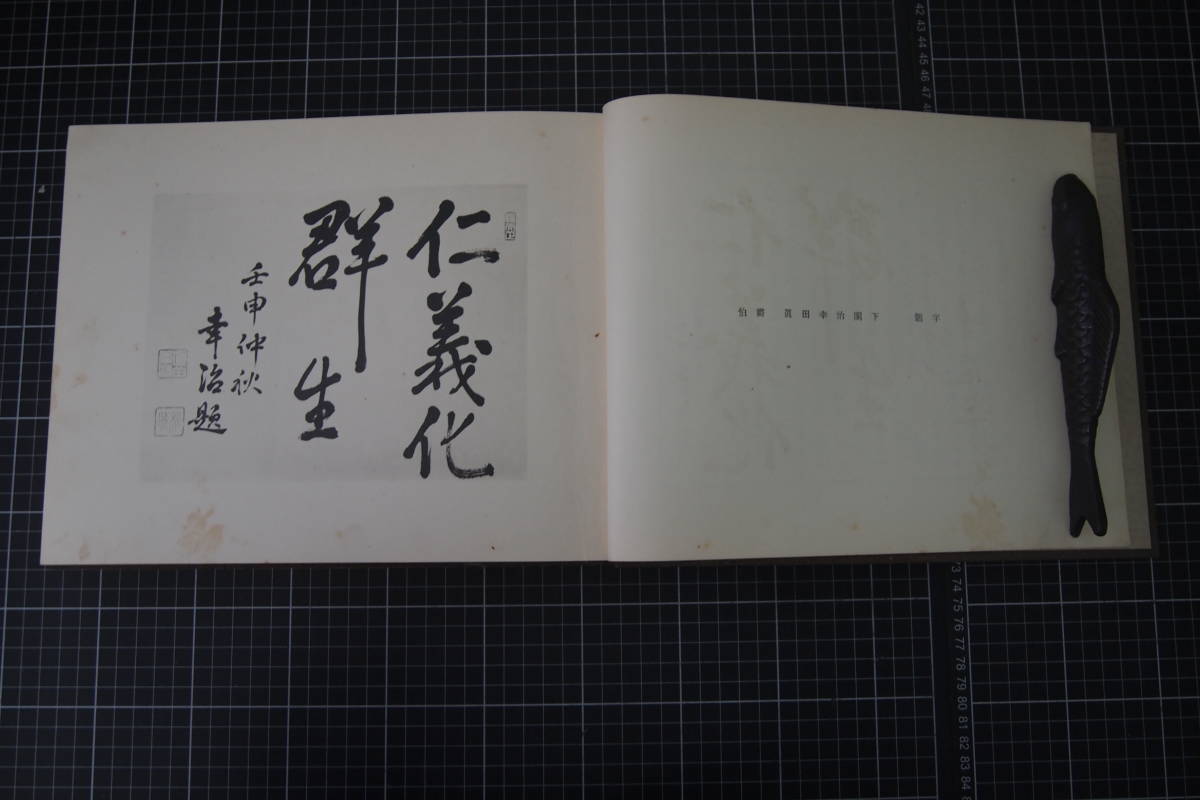 仁義化
群生
壬申仲秋
幸治題
伯爵 眞田幸治閣下 題字
42 43 44 45 46 47
73 74 75 76 77 78 79 80 81 82 83 84